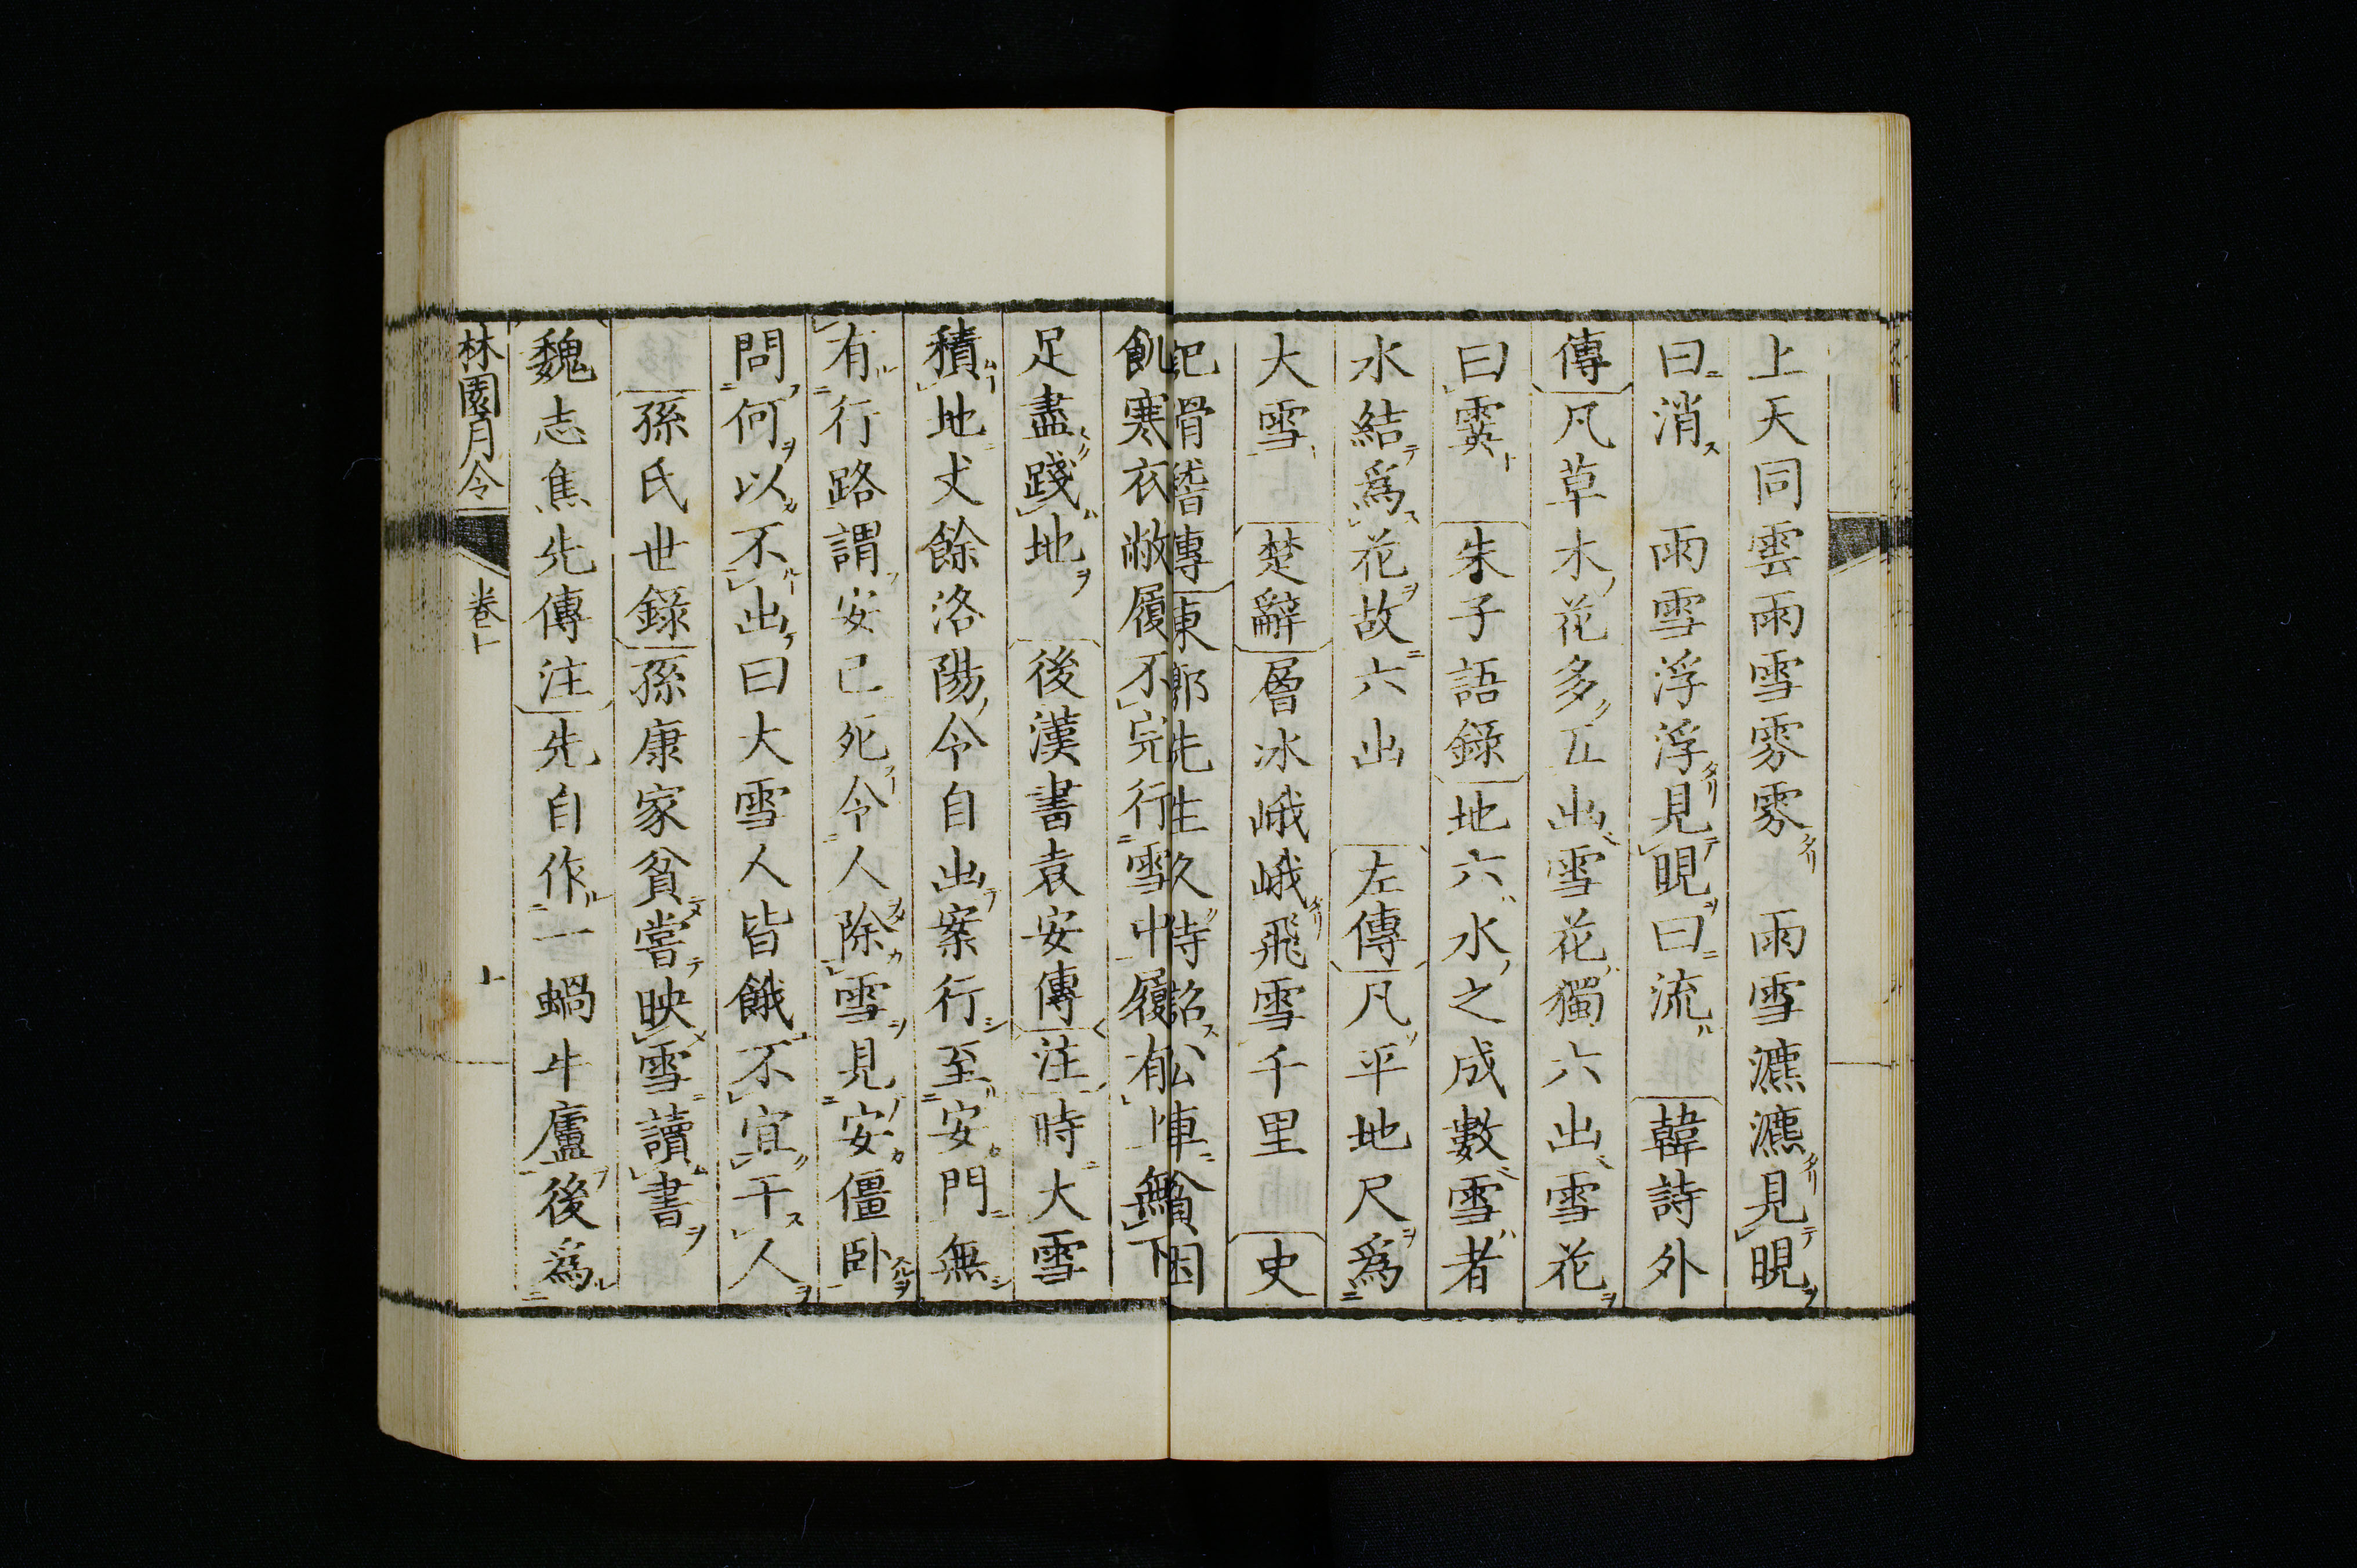 上天同雲雨雪雰雰　雨雪瀌瀌見晛
曰消　雨雪浮浮見晛曰流　韓詩外
傳凡草木花多五出雪花獨六出雪花
曰霙　朱子語錄地六水之成數雪者
水結爲花故六出　左傳凡平地尺爲
大雪　楚辭層冰峨峨飛雪千里　史
記滑稽傳東郭先生久待詔公車貧困
飢寒衣敝履不完行雪中履有上無下
足盡踐地　後漢書袁安傳注時大雪
積地丈餘洛陽令自出案行至安門無
有行路謂安已死令人除雪見安僵臥
問何以不出曰大雪人皆餓不宜干人
孫氏世錄孫康家貧嘗映雪讀書
魏志焦先傳注先自作一蝸牛廬後爲
林園月令　卷上　上